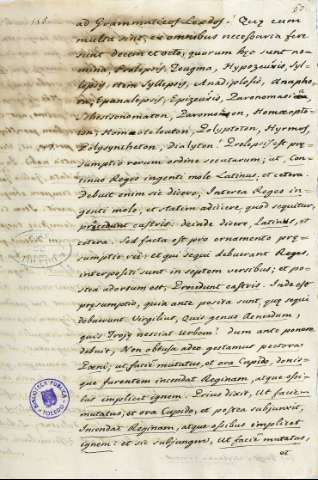 ad Grammaticos Lexdos? Quæ cum
multa sint, ex omnibus necessaria fere
sunt decem et octo, quorum hæc sunt no-
mina, Prolepsis, Zeugma, Hypozeuxis, Syl-
lepsis, item Syllepsis, Anadiplosis, Anapho-
ra, Epanalepsis, Epizeuxis, Paronomasia,
Schesisonomaton, Paromœon, Homœopto-
ton, Homœoteleuton, Polyptoton, Hyrmos,
Polysyntheton, Dialyton? Prolepsis est præ-
sumptio rerum ordine secuturarum; ut, Con-
tinuo Reges ingenti mole Latinus, et cetera.
Debuit enim sic dicere, Interea Reges in-
genti mole, et statim adiicere, quod sequitur,
procedunt castris: deinde dicere, Latinus, et
cetera. Sed facta est pro ornamento præ-
sumptio rei: et qui sequi debuerant Reges,
interpositi sunt in septem versibus; et po-
stea adortum est; Procedunt castris. Inde est
præsumptio, quia ante posita sunt, quæ sequi
debuerant. Virgilius, Quis genus Aeneadum,
quis Trojæ nesciat Urbem? dum ante ponere
debuit, Non obtusa adeo gestamus pectora
Poeni; ut facie mutatus, et ora Cupido, donis-
que furentem incendat Reginam, atque ossi-
bus implicet ignem. Prius dixit, Ut facie
mutatus, et ora Cupido, et postea subjunxit,
Incendat Reginam, atque ossibus implicet
ignem: et sic subjungere, Ut facie mutatus,
et
BIBLIOTECA PUBLICA
TOLEDO